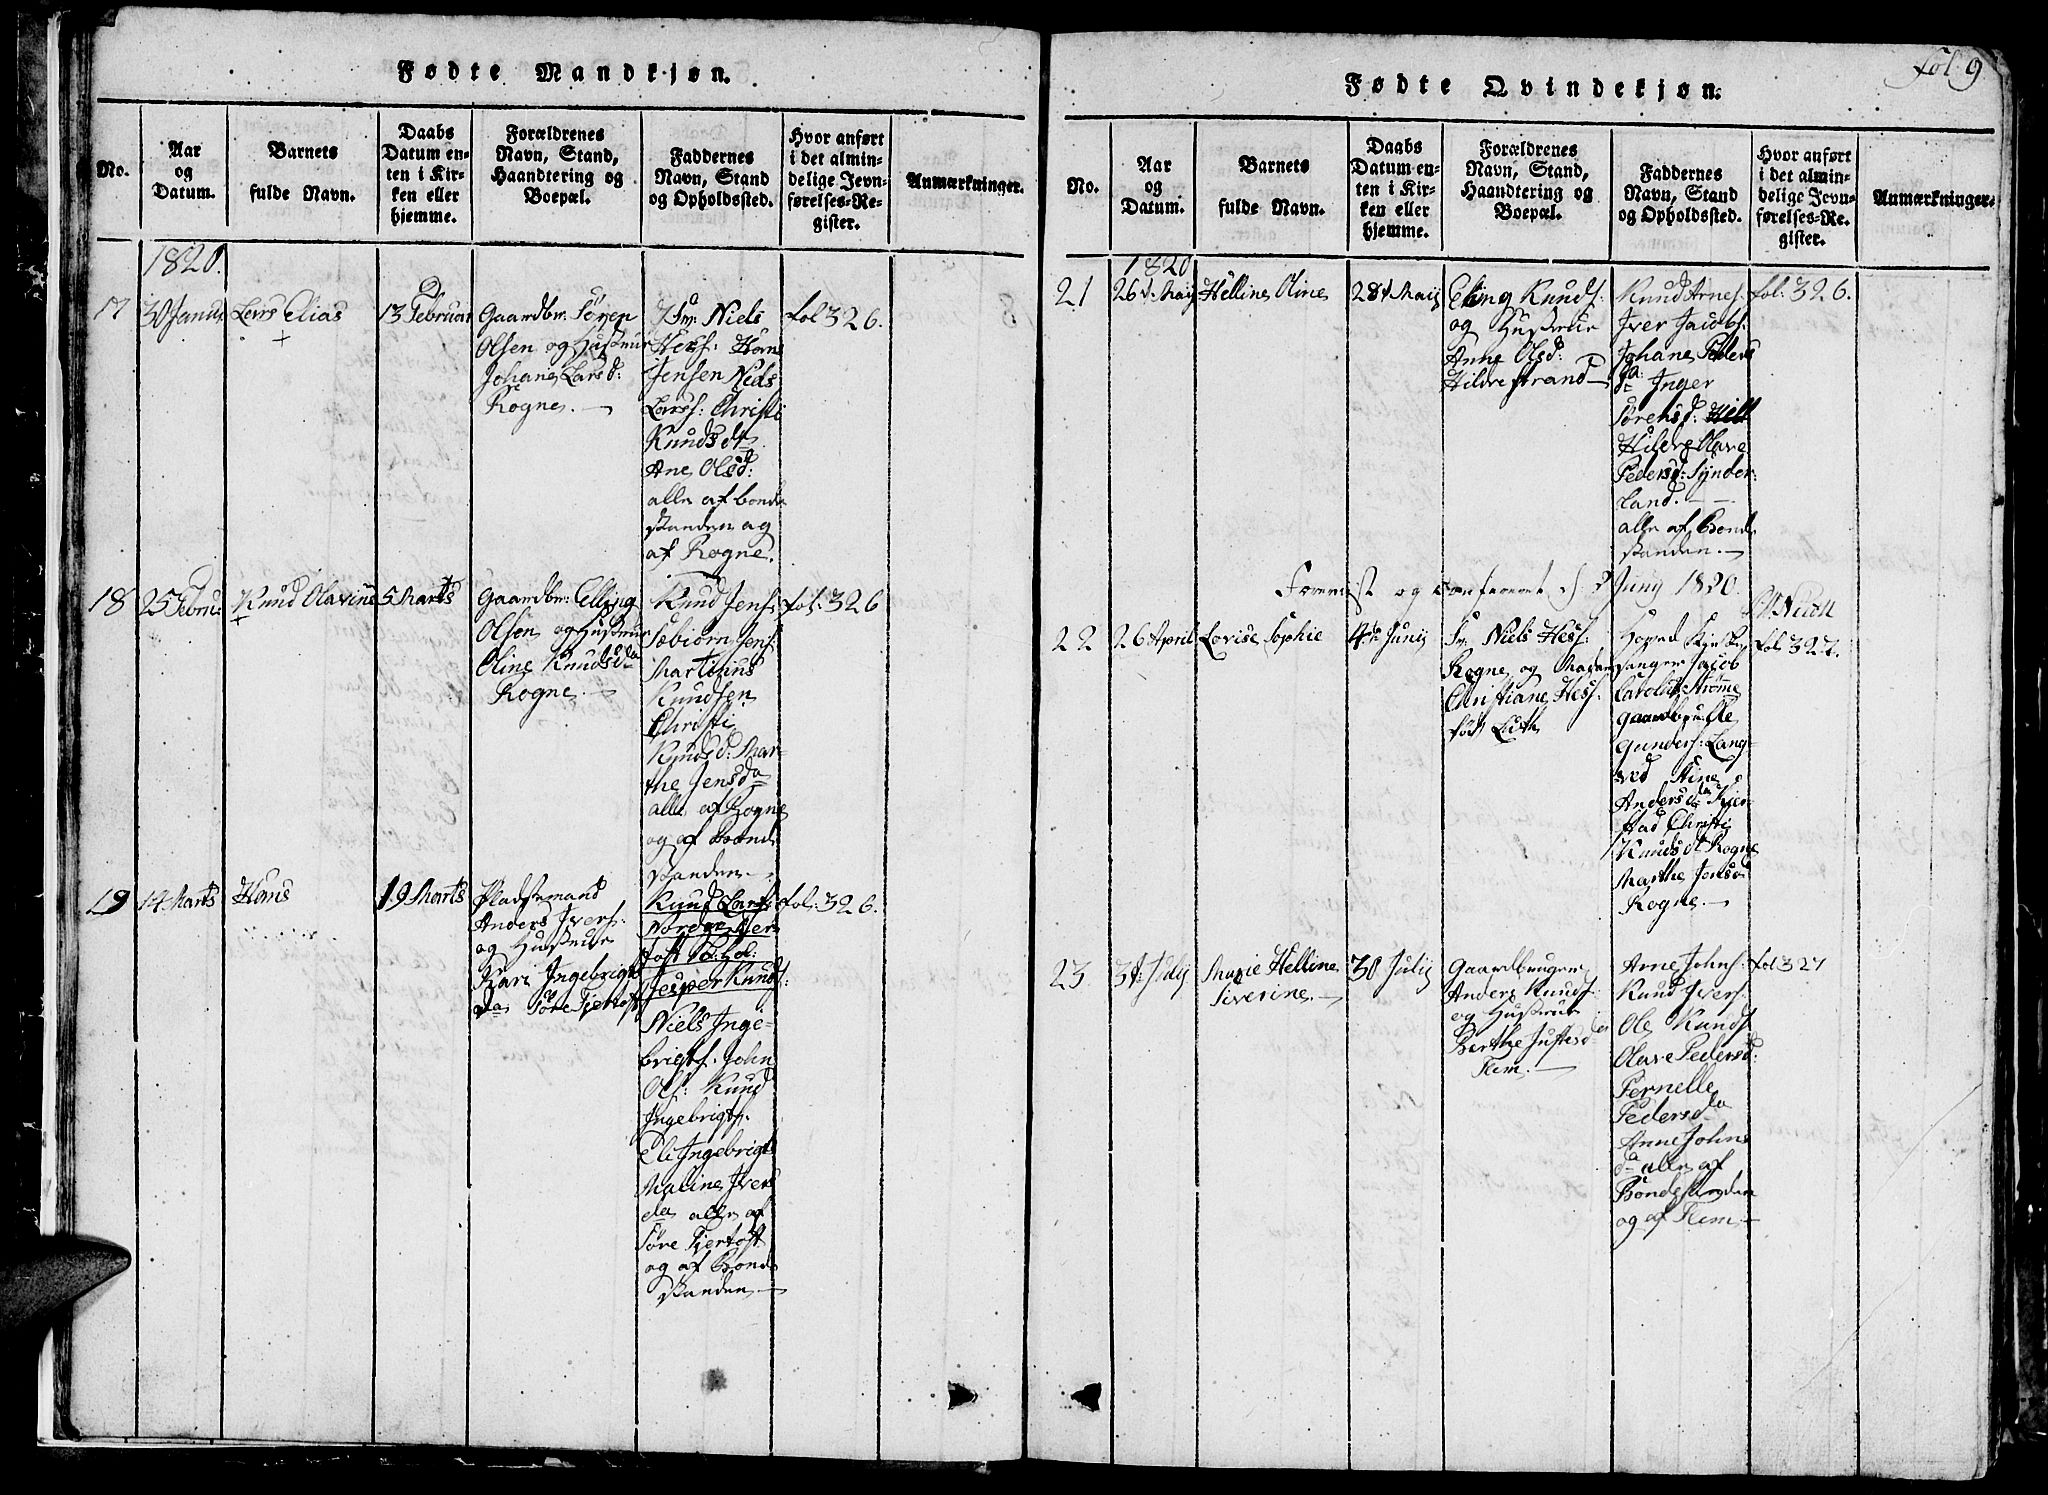 Fødte Mandkjøn.
No.
Aar
og
Datum.
Barnets
fulde Navn.
Daabs
Datum en-
ten i Kir-
ken eller
hjemme.
Forældrenes
Navn, Stand,
Haandtering og
Boepæl.
Faddernes
Navn, Stand
og Opholdssted.
Hvor anført
i det almin-
delige Jevn-
førelses-Re-
gister.
Anmærkninger.
1820.
17
30 Janu:
Lars Elias
13 Februar
Gaardbr: Sören
Olsen og Hustrue
Johane Larsd:
Rogne. —
Sr. Niels
Hess: Hans
Jensen Niels
Larss: Christi
Knudsdt
Ane Olsd:
alle af bonde
standen og
af Rogne.
fol 326.
18
25 Febru:
Knud Olavius
5 Marts
Gaardbr: Elling
Olsen og Hustrue
Oline Knudsda
Rogne. —
Knud Jens:
Sæbiörn Jens:
Martinus
Knudsen
Christi
Knudsd: Mar-
the Jensda
alle af Rogne
og af Bonde
standen. -
fol: 326
19
14 Marts
Hans
19 Marts
Pladsemand
Anders Ivers:
og Hustrue
Kari Ingebrigts
da Söre Fjertoft
Knud Lars:
Nordre Fjer
toft
Jesper Knuds:
Niels Inge-
brigts. John
Ols: Knud
Ingebrigts.
Eli Ingebrigts
Maline Ivers
da alle af
Söre Fjertoft
og af Bonde
standen. —
fol: 326.
fol 9
Fødte Qvindekjøn.
No.
Aar
og
Datum.
Barnets
fulde Navn.
Daabs
Datum en-
ten i Kir-
ken eller
hjemme.
Forældrenes
Navn, Stand,
Haandtering og
Boepæl.
Faddernes
Navn, Stand
og Opholdssted.
Hvor anført
i det almin-
delige Jevn-
førelses-Re-
gister.
Anmærkninger.
1820
21
26 d. Maij
Helline Oline
28 d Maij
Elling Knuds:
og Hustrue
Anne Olsd:
Hildrestrand —
Knud Arnes:
Iver Jacobs:
Johane Peders
da: Inger
Sörensd:
Hildre Olave
Pedersd: Synder-
land. — —
alle af Bonde
standen. —
fol: 326.
og confereret d. 2 Juny 1820.
22
26 April
Lovise Sophie
4de Junij
Sr. Niels Hess:
Rogne og Madam
Christiane Hess:
föd Lüth
Jacob
Strömme
Gunders: Lang-
Stine
Andersda Kjer-
stad Christi
Knudsdt Rogne
Marthe Jensd
Rogne. —
fol 327.
23
3d: Julij
Marie Helline
Siverine. —
30 Julij
Gaardbruger
Anders Knuds:
og Hustrue
Berthe Justesda
Flem. —
Arne Johns:
Knud Ivers:
Ole Knuds
Olave Pedersd:
Pernelle
Pedersda
Anne Johns
da alle af
Bondestanden
og af Flem —
fol 327